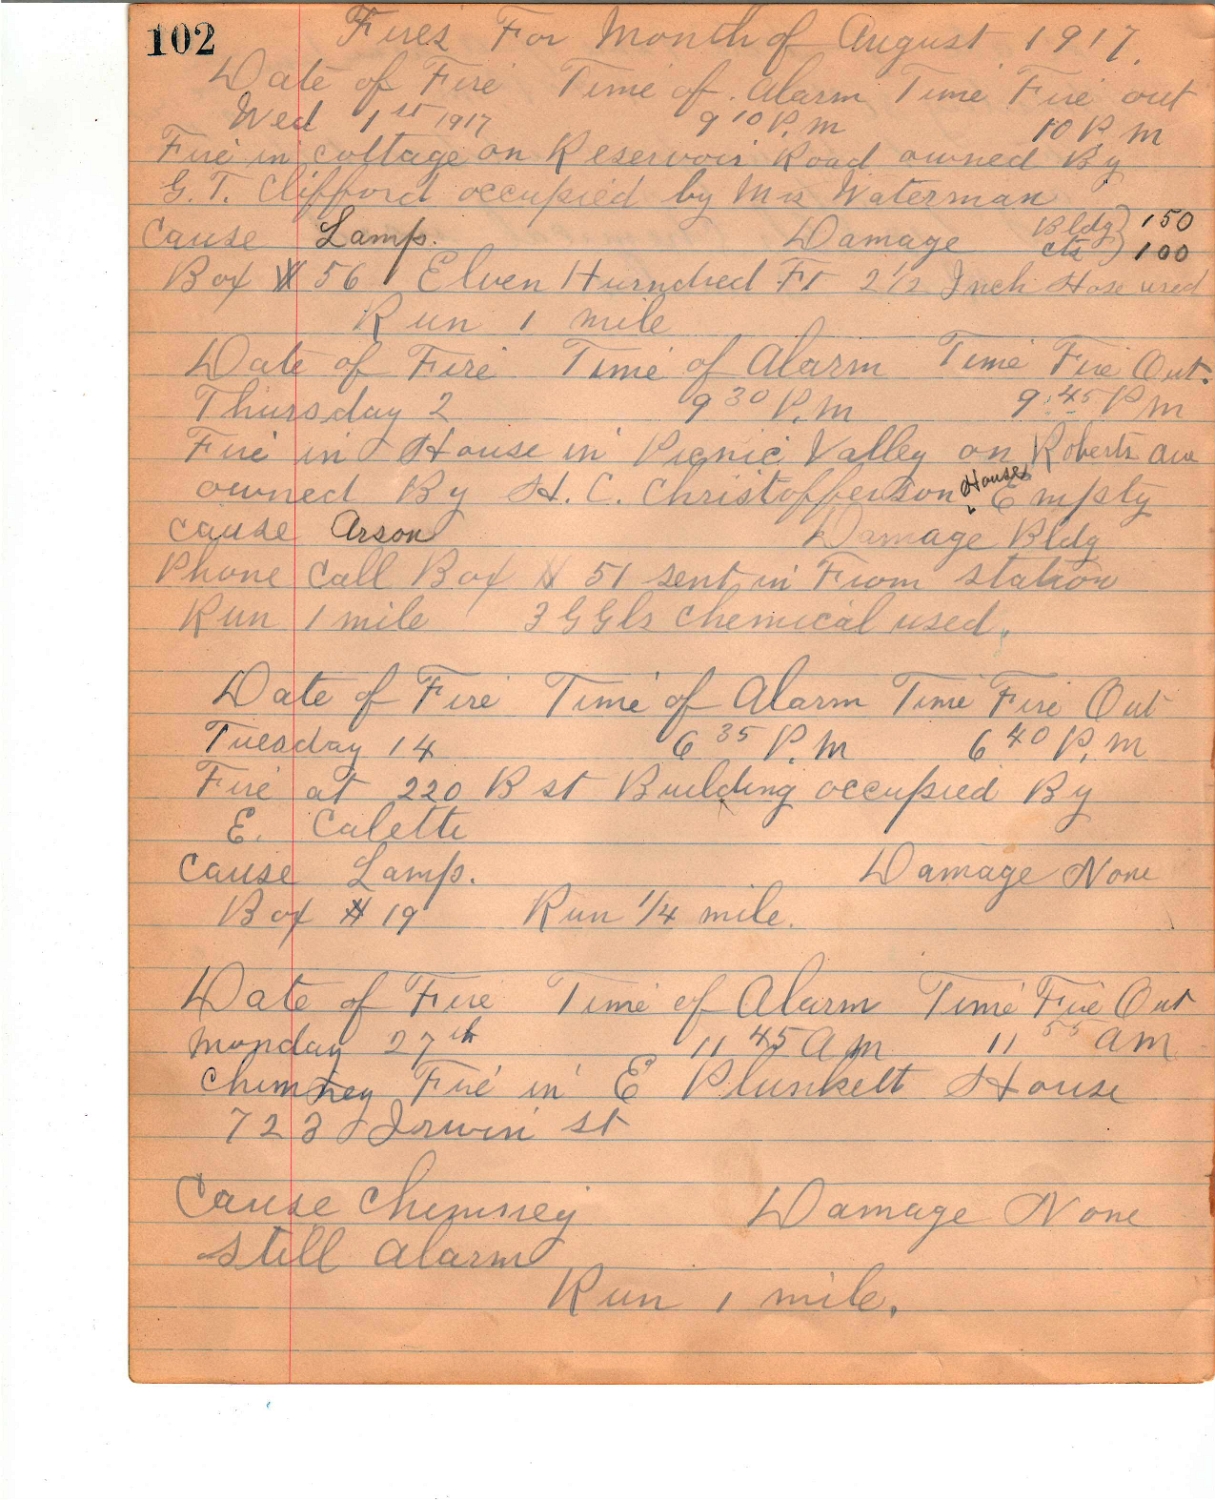 102
Fires For Month of August 1917.
Date of Fire Time of Alarm Time Fire out
Wed 1st 1917 9 10 P.M 10 P M
Fire in cottage on Reservoir Road owned By
G. T. Clifford occupied by Mrs Waterman
Cause Lamp. Damage Bldg } 150
cts } 100
Box # 56 Elven Hurndred Ft 2 1/2 Inch Hose used
Run 1 mile
Date of Fire Time of Alarm Time Fire Out.
Thursday 2 9 30 P.M 9:45 P M
Fire in House in Picnic Valley on Roberts ave
owned By H. C. Christofferson House Empty
Cause Arson Damage Bldg
Phone Call Box # 51 sent in From station
Run 1 mile 3 G Gls Chemical used.
Date of Fire Time of Alarm Time Fire Out
Tuesday 14 6 35 P.M 6 40 P.M
Fire at 220 B st Building occupied By
E. Caletti
Cause Lamp. Damage None
Box # 19 Run 1/4 mile.
Date of Fire Time of Alarm Time Fire Out
Monday 27th 11 45 A M 11 55 am
Chimney Fire in E Plunkett House
723 Irwin st
Cause Chimney Damage None
Still Alarm
Run 1 mile.